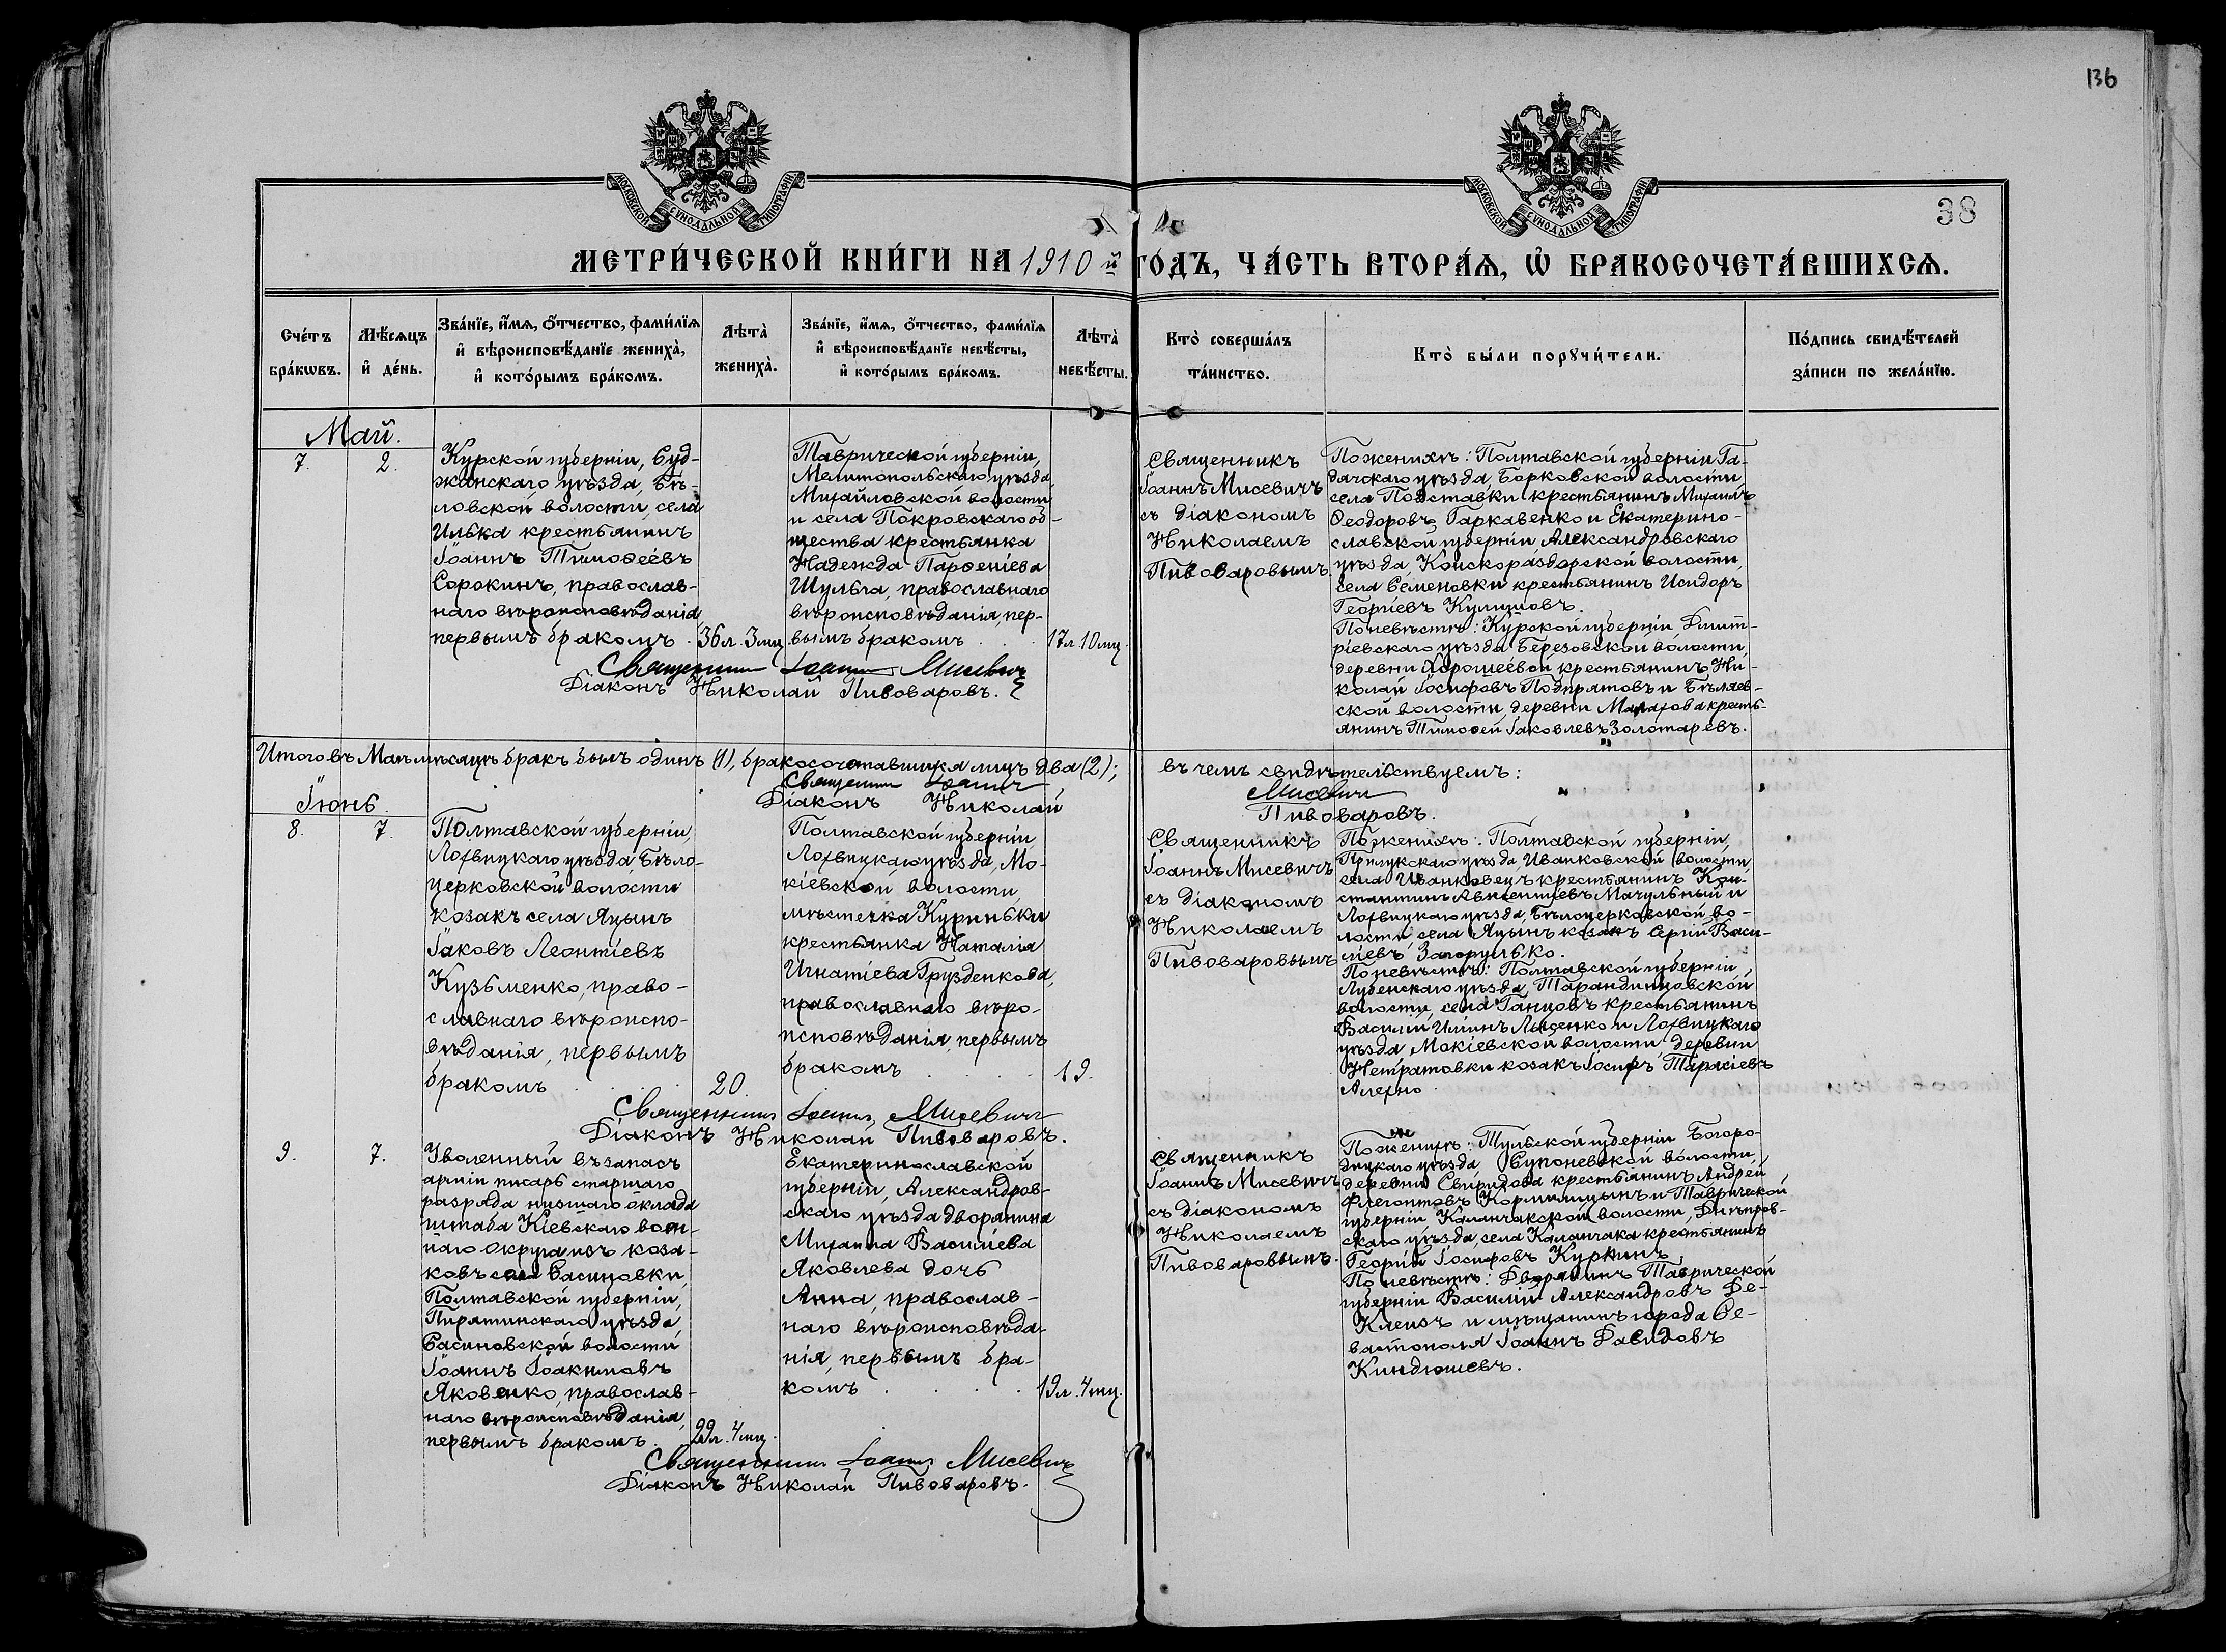 136
МОСКОВСКОЙ СѴНОДАЛЬНОЙ ТИПОГРАФІИ
МОСКОВСКОЙ СѴНОДАЛЬНОЙ ТИПОГРАФІИ
38
МЕТРИ́ЧЕСКОЙ КНИ́ГИ НА 1910й ГО́ДЪ, ЧА́СТЬ ВТОРА́Ѧ, Ѡ҆ БРАКОСОЧЕТА́ВШИХСѦ.
Сче́тъ бра́кѡвъ.
Мѣ́сѧцъ и҆ де́нь.
Зва́нїе, и҆́мѧ, ѻ҆́тчество, фами́лїѧ и҆ вѣроисповѣ́данїе жениха̀, и҆ кото́рымъ бра́комъ.
Лѣта̀ жениха̀.
Зва́нїе, и҆́мѧ, ѻ҆́тчество, фами́лїѧ и҆ вѣроисповѣ́данїе невѣ́сты, и҆ кото́рымъ бра́комъ.
Лѣта̀ невѣ́сты.
Кто̀ соверша́лъ та́инство.
Кто̀ бы́ли порꙋчи́тели.
По́дпись свидѣ́телей за́писи по жела́нїю.
Май.
7.
2.
Курской губерніи, Суд-
жанскаго уѣзда, Бѣ-
ловской волости, села
Илька крестьянинъ
Іоаннъ Тимоѳеевъ
Сорокинъ, православ-
наго вѣроисповѣданія,
первымъ бракомъ.
36 л. 3 мц
Таврической губерніи,
Мелитопольскаго уѣзда,
Михайловской волости
и села Покровскаго об-
щества крестьянка
Надежда Парѳеніева
Шульга, православнаго
вѣроисповѣданія, пер-
вымъ бракомъ
17 л. 10 мц.
Священникъ
Іоаннъ Мисевичъ
съ діакономъ
Николаемъ
Пивоваровымъ
По женихѣ: Полтавской губерніи Га-
дячскаго уѣзда, Борковской волости
села Подставки крестьянинъ Михаилъ
Ѳеодоровъ Гаркавенко и Екатерино-
славской губерніи Александровскаго
уѣзда, Конскораздорской волости,
села Семеновки крестьянинъ Исидоръ
Георгіевъ Кулишовъ.
По невѣстѣ: Курской губерніи, Дмит-
ріевскаго уѣзда Березовской волости,
деревни Хорошеевой крестьянинъ Ни-
колай Іосифовъ Подпрятовъ и Бѣляев-
ской волости, деревни Малахова кресть-
янинъ Тимоѳей Іаковлевъ Золотаревъ.
Священникъ Іоаннъ Мисевичъ
Діаконъ Николай Пивоваровъ.
Итого въ Маѣ мѣсяцѣ бракъ былъ одинъ (1), бракосочетавшихся лицъ два (2); въ чемъ свидѣтельствуемъ:
Священникъ Іоаннъ Мисевичъ
Діаконъ Николай Пивоваровъ.
Іюнь.
8.
7.
Полтавской губерніи,
Лохвицкаго уѣзда, Бѣло-
церковской волости
козакъ села Яцынъ
Іаковъ Леонтіевъ
Кузьменко, право-
славнаго вѣроиспо-
вѣданія, первымъ
бракомъ
20.
Полтавской губерніи
Лохвицкаго уѣзда, Мо-
кіевской волости,
мѣстечка Куриньки
крестьянка Наталія
Игнатіева Грузденкова,
православнаго вѣро-
исповѣданія, первымъ
бракомъ
19.
Священникъ
Іоаннъ Мисевичъ
съ діакономъ
Николаемъ
Пивоваровымъ
По женихѣ: Полтавской губерніи,
Прилукскаго уѣзда Иванковской волости
села Иванковецъ крестьянинъ Кон-
стантинъ Авксентіевъ Мачульный и
Лохвицкаго уѣзда, Бѣлоцерковской во-
лости, села Яцынъ козакъ Сергій Васи-
ліевъ Загорулько.
По невѣстѣ: Полтавской губерніи,
Лубенскаго уѣзда, Тарандинцовской
волости, села Ганцовъ крестьянинъ
Василій Ильинъ Лысенко и Лохвицкаго
уѣзда, Мокіевской волости, деревни
Нетратовки козакъ Іосифъ Тарасіевъ
Алехно.
Священникъ Іоаннъ Мисевичъ
Діаконъ Николай Пивоваровъ.
9.
7.
Уволенный въ запасъ
арміи писарь старшаго
разряда низшаго оклада
штаба Кіевскаго воен-
наго округа изъ коза-
ковъ села Сасиновки,
Полтавской губерніи,
Пирятинскаго уѣзда
Сасиновской волости
Іоаннъ Іоакимовъ
Яковенко, православ-
наго вѣроисповѣданія,
первымъ бракомъ.
29 л. 4 мц.
Екатеринославской
губерніи, Александров-
скаго уѣзда дворянина
Михаила Василіева
Яковлева дочь
Анна, православ-
наго вѣроисповѣда-
нія, первымъ бра-
комъ
19 л. 4 мц.
Священникъ
Іоаннъ Мисевичъ
съ діакономъ
Николаемъ
Пивоваровымъ.
По женихѣ: Тульской губерніи Богоро-
дицкаго уѣзда, Супоневской волости,
деревни Свиридова крестьянинъ Андрей
Флегонтовъ Кормилицынъ и Таврической
губерніи, Каланчакской волости, Днѣпров-
скаго уѣзда, села Каланчака крестьянинъ
Георгій Іосифовъ Куркинъ.
По невѣстѣ: Дворянинъ Таврической
губерніи Василій Александровъ Де-
Клеизъ и мѣщанинъ города Се-
вастополя Іоаннъ Давидовъ
Киндюшевъ.
Священникъ Іоаннъ Мисевичъ
Діаконъ Николай Пивоваровъ.